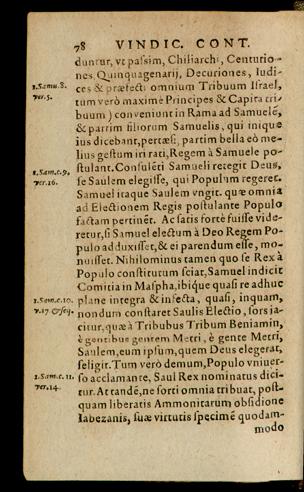 78 VINDIC. CONT.
duntur, vt passim, Chiliarchi, Centurio-
nes, Quinquagenarij, Decuriones, Iudi-
1.Samu.8. ces & præfecti omnium Tribuum Israel,
ver.5. tum verò maximè Principes & Capita tri-
buum) conveniunt in Rama ad Samuelē,
& partim filiorum Samuelis, qui inique
ius dicebant, pertæsi, partim bella eò me-
lius gestum iri rati, Regem à Samuele po-
1.Sam.c.9, stulant. Consulēti Samueli retegit Deus,
ver.16. se Saulem elegisse, qui Populum regeret.
Samuel itaque Saulem vngit. quæ omnia
ad Electionem Regis postulante Populo
factam pertinēt. Ac satis fortè fuisse vide-
retur, si Samuel electum à Deo Regem Po-
pulo adduxisset, & ei parendum esse, mo-
nuisset. Nihilominus tamen quo se Rex à
Populo constitutum sciat, Samuel indicit
Comitia in Maspha, ibique quasi re adhuc
1.Sam.c.10. plane integra & infecta, quasi, inquam,
v.17 & seq. nondum constaret Saulis Electio, sors ia-
citur, quæ à Tribubus Tribum Beniamin,
è gentibus gentem Metri, è gente Metri,
Saulem, eum ipsum, quem Deus elegerat,
seligit. Tum verò demum, Populo vniuer-
1.Sam.c.11. so acclamante, Saul Rex nominatus dici-
ver.14. tur. At tandē, ne sorti omnia tribuat, post-
quam liberatis Ammonitarum obsidione
Iabezanis, suæ virtutis specimē quodam-
modo